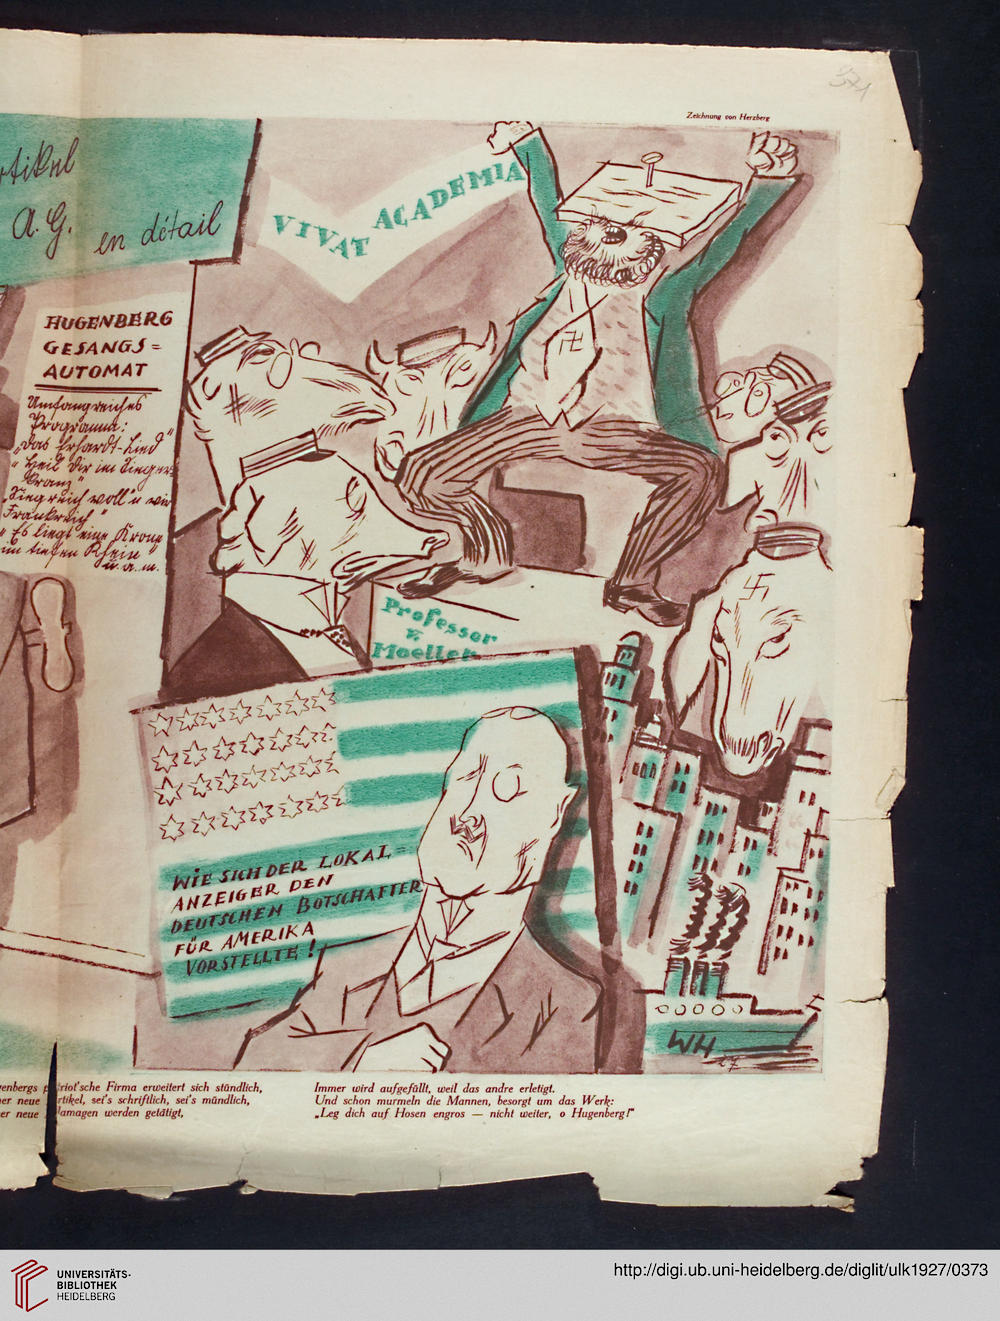 Zeichnung von Herzberg
A. G. en détail
VIVAT ACADEMIA
HUGENBERG
GESANGS=
AUTOMAT
Umfangreiches
Programm:
„Das Erhardt-Lied"
„Heil Dir im Sieger
kranz"
„Siegreich woll'n wir
Frankreich"
„Es liegt eine Krone
im tiefen Rhein"
u. a. m.
Professor
v.
Moeller
WIE SICH DER LOKAL=
ANZEIGER DEN
DEUTSCHEN BOTSCHAFTER
FÜR AMERIKA
VORSTELLTE!
WH
27
sche Firma erweitert sich stündlich,
neue rtikel, sei's schriftlich, sei's mündlich,
neue lamagen werden getätigt,
Immer wird aufgefüllt, weil das andre erledigt.
Und schon murmeln die Mannen, besorgt um das Werk:
„Leg dich auf Hosen engros — nicht weiter, o Hugenberg!"
UNIVERSITÄTS-
BIBLIOTHEK
HEIDELBERG
http://digi.ub.uni-heidelberg.de/diglit/ulk1927/0373